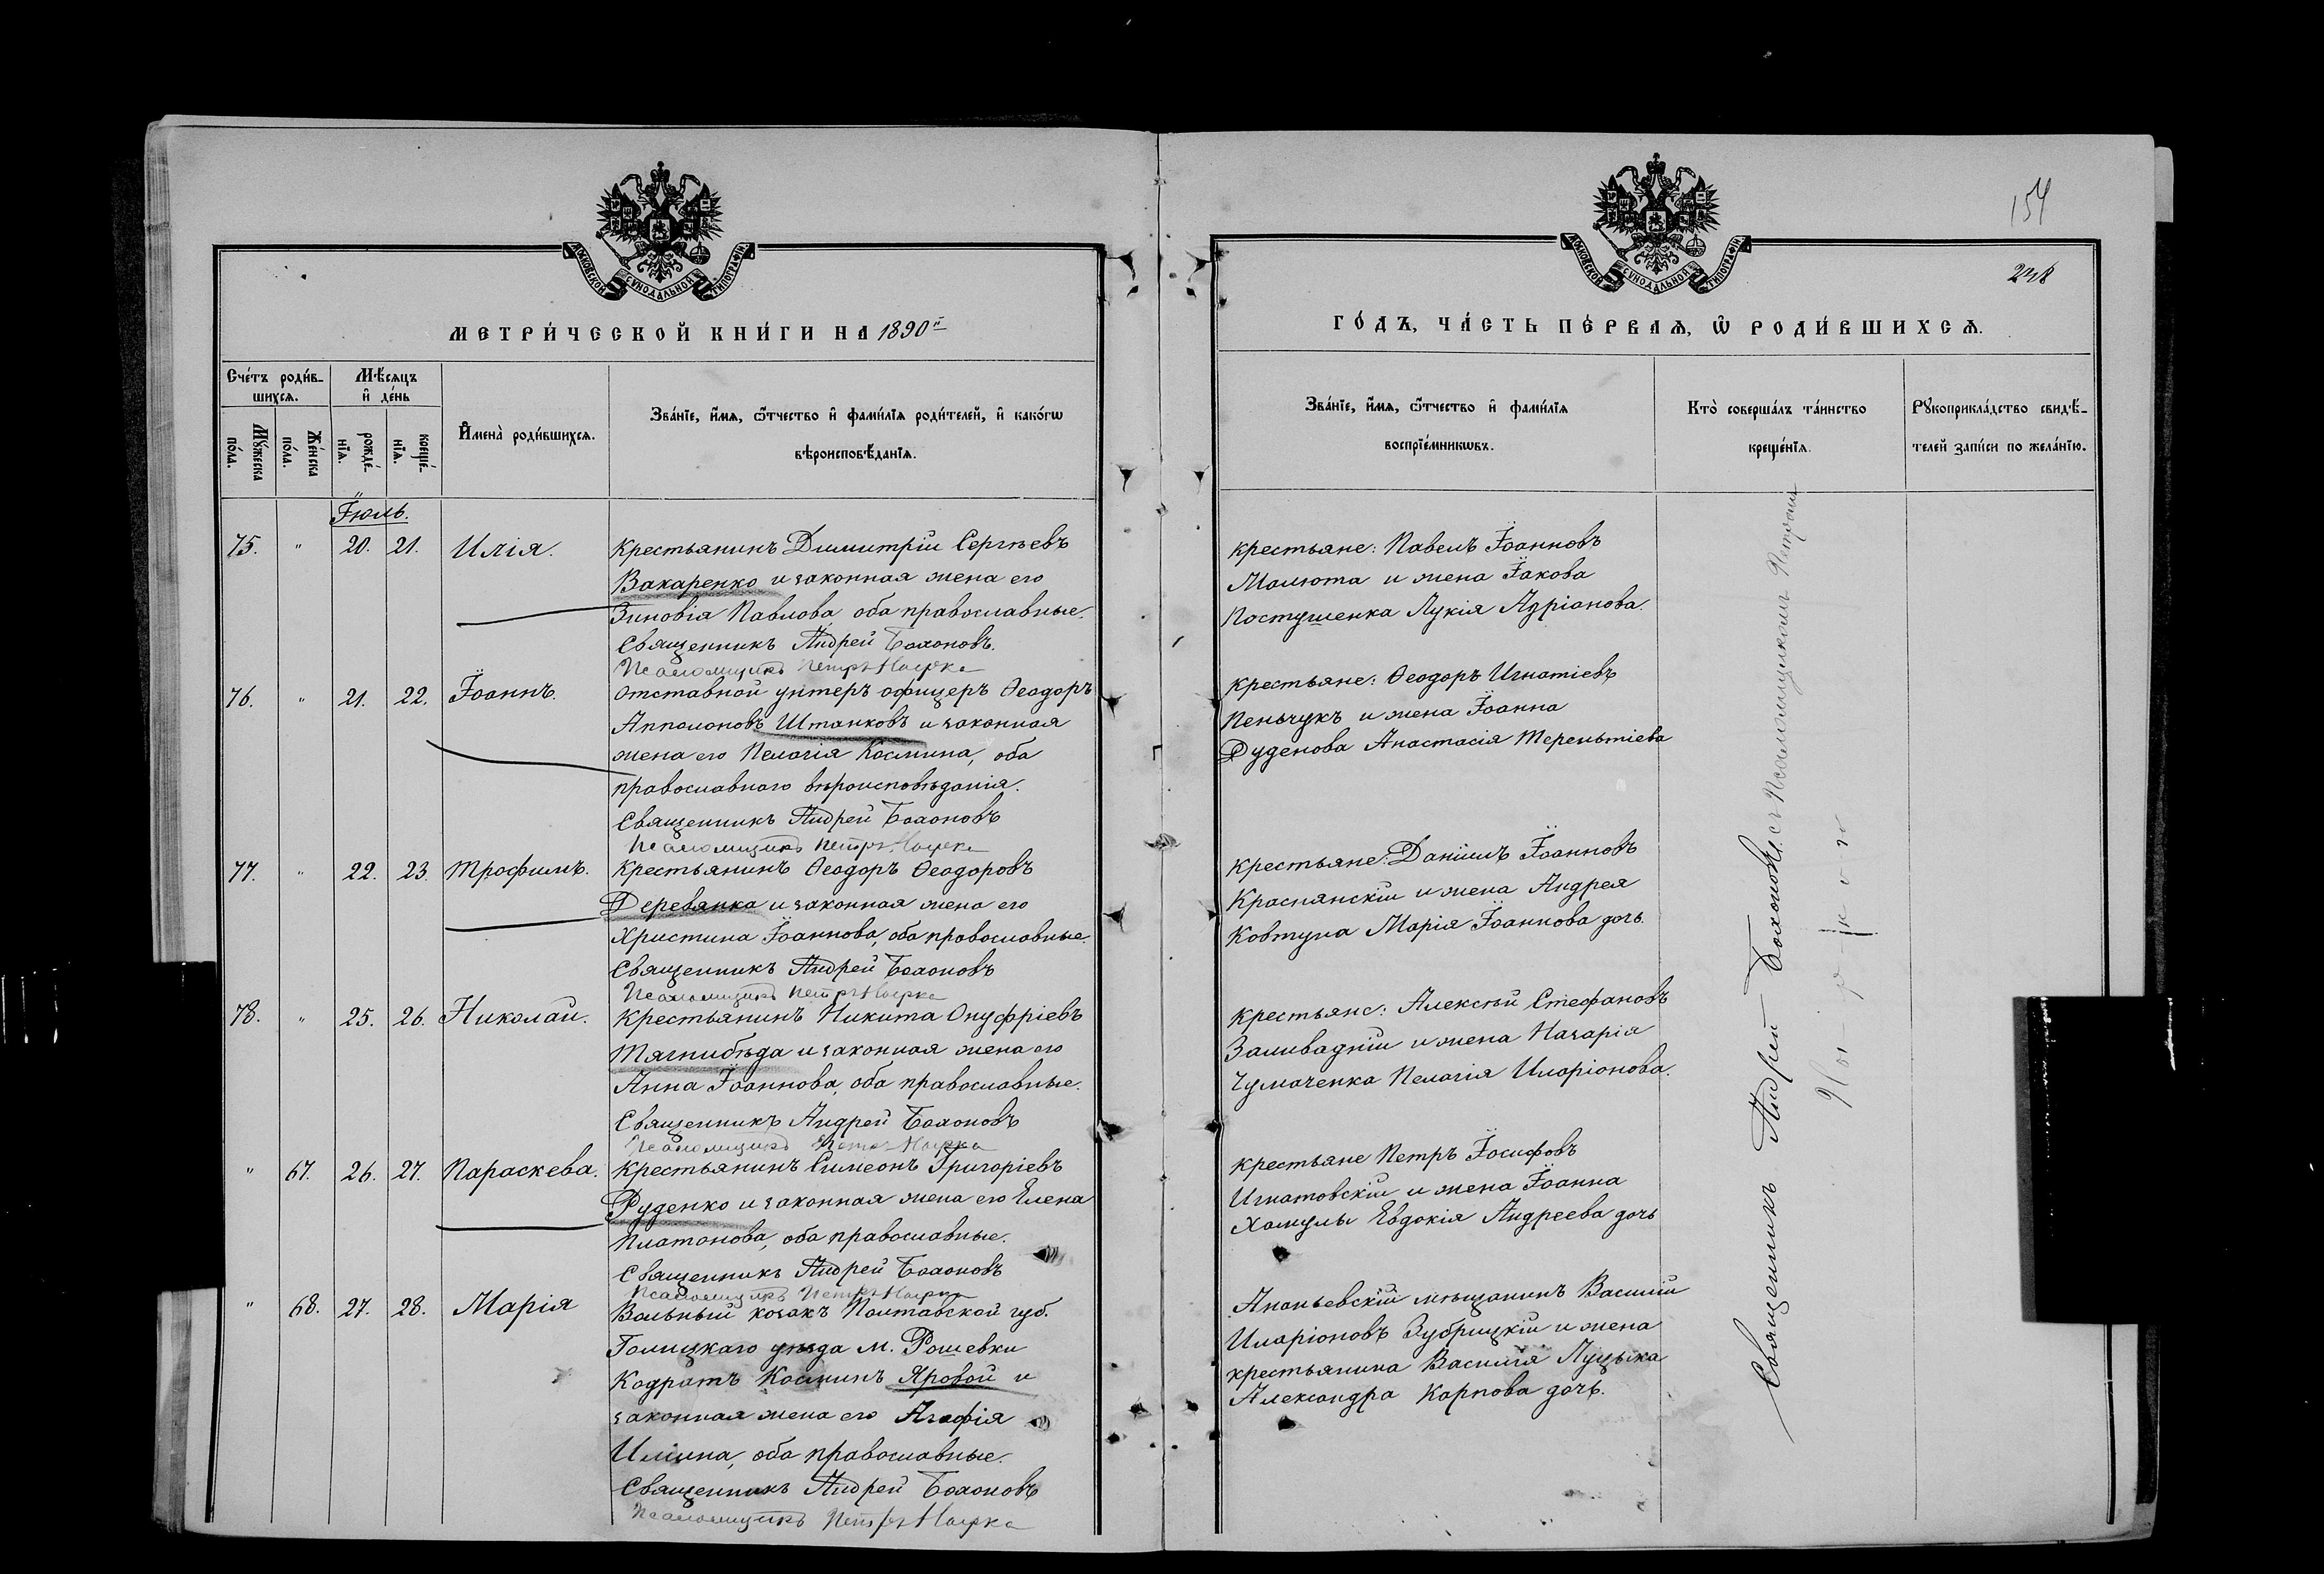 154
248
МОСКОВСКОЙ СѴНОДАЛЬНОЙ ТИПОГРАФІИ
МЕТРИ́ЧЕСКОЙ КНИ́ГИ НА 1890й
Сче́тъ роди́в-
шихсѧ.
Мѣ́сѧцъ
и҆ де́нь
Мꙋ́жеска
по́ла.
Же́нска
по́ла.
рожде́-
нїѧ.
креще́-
нїѧ.
И҆мена̀ роди́вшихсѧ.
Зва́нїе, и҆́мѧ, ѻ҆́тчество и҆ фами́лїѧ роди́телей, и҆ како́гѡ
вѣроисповѣ́данїѧ.
Іюль.
75. " 20. 21. Илія. Крестьянинъ Димитрій Сергѣевъ
Вакаренко и законная жена его
Зиновія Павлова, оба православные.
Священникъ Андрей Бохоновъ.
Псаломщикъ Петръ
76. " 21. 22. Іоаннъ. Отставной унтеръ офицеръ Ѳеодоръ
Апполоновъ Штанковъ и законная
жена его Пелагія Космина, оба
православнаго вѣроисповѣданія.
Священникъ Андрей Бохоновъ
Псаломщикъ Петръ
77. " 22. 23. Трофимъ. Крестьянинъ Ѳеодоръ Ѳеодоровъ
Деревянка и законная жена его
Христина Іоаннова, оба православные.
Священникъ Андрей Бохоновъ
Псаломщикъ Петръ
78. " 25. 26. Николай. Крестьянинъ Никита Онуфріевъ
Тягнибѣда и законная жена его
Анна Іоаннова, оба православные.
Священникъ Андрей Бохоновъ
Псаломщикъ Петръ
" 67. 26. 27. Параскева. Крестьянинъ Симеонъ Григоріевъ
Руденко и законная жена его Елена
Платонова, оба православные.
Священникъ Андрей Бохоновъ
Псаломщикъ Петръ
" 68. 27. 28. Марія Вольный козакъ Полтавской губ.
уѣзда м. Рошевки
Кодратъ Косминъ Яровой и
законная жена его Агафія
Иліина, оба православные.
Священникъ Андрей Бохоновъ
Псаломщикъ Петръ
МОСКОВСКОЙ СѴНОДАЛЬНОЙ ТИПОГРАФІИ
ГО́ДЪ, ЧА́СТЬ ПЕ́РВАѦ, Ѽ РОДИ́ВШИХСѦ.
Зва́нїе, и҆́мѧ, ѻ҆́тчество и҆ фами́лїѧ
воспрїе́мникѡвъ.
Кто̀ соверша́лъ та́инство
креще́нїѧ.
Рꙋкоприкла́дство свидѣ́-
телей за́писи по жела́нїю.
Крестьяне: Павелъ Іоанновъ
Малюта и жена Іакова
Постушенка Лукія Адріанова.
Крестьяне: Ѳеодоръ Игнатіевъ
Пеньчукъ и жена Іоанна
Дуденова Анастасія Терентіева
Крестьяне: Даніилъ Іоанновъ
Краснянскій и жена Андрея
Ковтуна Марія Іоаннова дочь.
Крестьяне: Алексѣй Стефановъ
Заливадній и жена Назарія
Чумаченка Пелагія Иларіонова.
Крестьяне Петръ Іосифовъ
Игнатовскій и жена Іоанна
Хомулы Евдокія Андреева дочь
Ананьевскій мѣщанинъ Василій
Иларіоновъ Зубрицкій и жена
крестьянина Василія Луцыка
Александра Карпова дочь.
Священникъ Андрей Бохоновъ съ Псаломщикомъ Петромъ